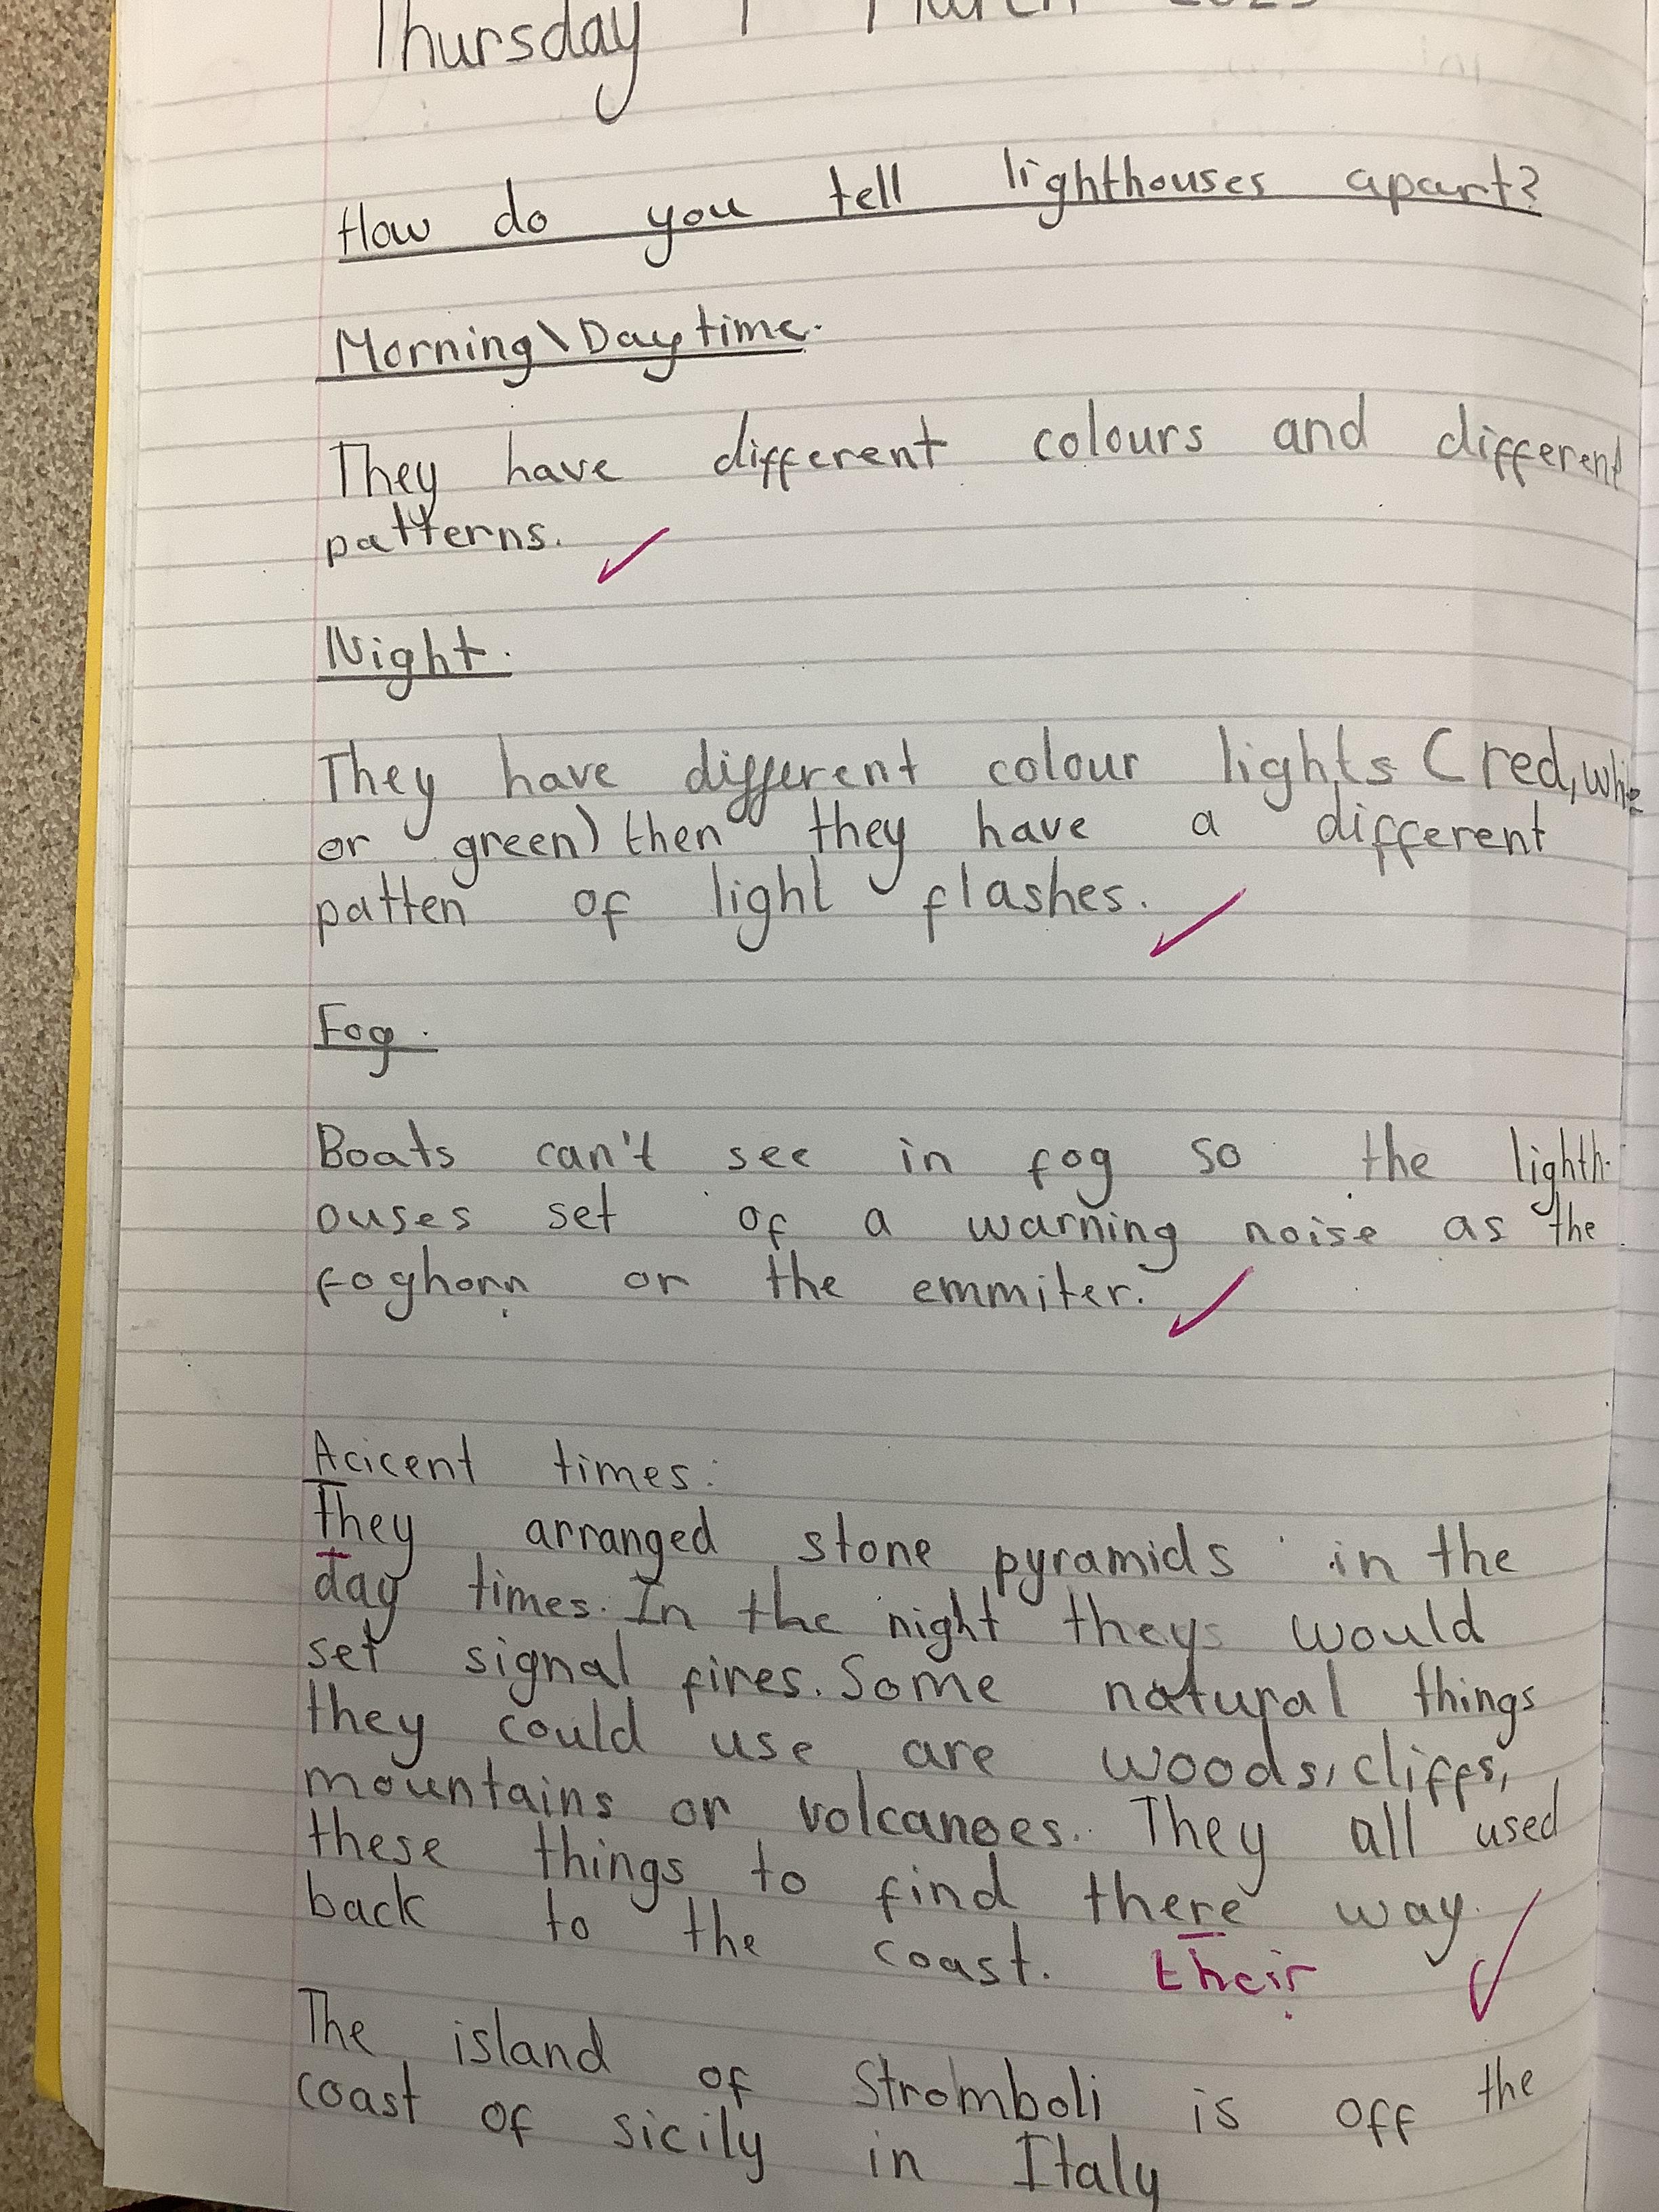 Thursday March
How do you tell lighthouses apart?
Morning\Daytime.
They have different colours and different
patterns.
Night.
They have different colour lights (red, white
or green) then they have a different
patten of light flashes.
Fog.
Boats can't see in fog so the lighth-
ouses set of a warning noise as the
foghorn or the emmiter.
Acicent times:
They arranged stone pyramids in the
day times. In the night theys would
set signal fires. Some natural things
they could use are woods, cliffs,
mountains or volcanoes. They all used
these things to find there way
back to the coast. their
The island of Stromboli is off the
coast of sicily in Italy